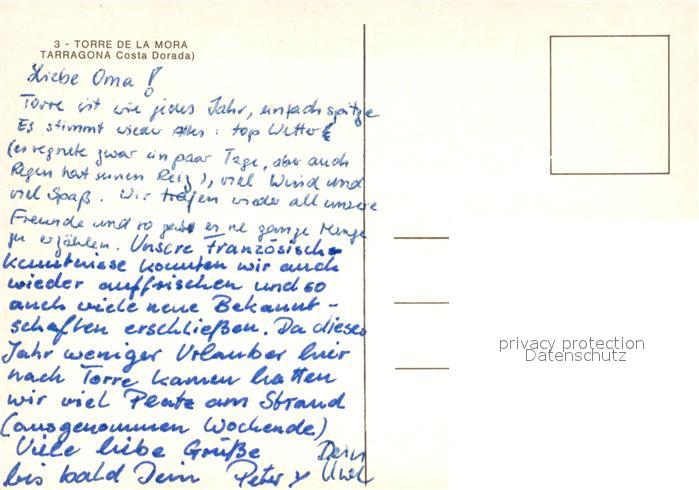 3 - TORRE DE LA MORA
TARRAGONA Costa Dorada)
Liebe Oma!
Torre ist wie jedes Jahr, einfach spitze
Es stimmt wieder alles: top Wetter
(es regnete zwar ein paar Tage, aber auch
Regen hat seinen Reiz), viel Wind und
viel Spaß. Wir treffen wieder all unsere
Freunde und so gibt es ne ganze Menge
zu erzählen. Unsere Französisch-
kenntnisse konnten wir auch
wieder auffrischen und so
auch viele neue Bekannt-
schaften erschließen. Da dieses
Jahr weniger Urlauber hier
nach Torre kamen hatten
wir viel Platz am Strand
(ausgenommen Wochende)
Viele liebe Grüße Dein
bis bald Dein Peter
privacy protection
Datenschutz